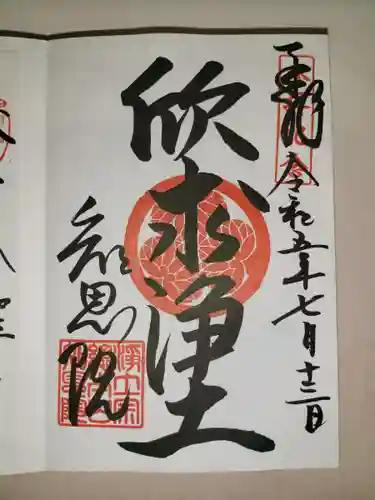 奉拝 令和五年七月十二日
欣求浄土
知恩院